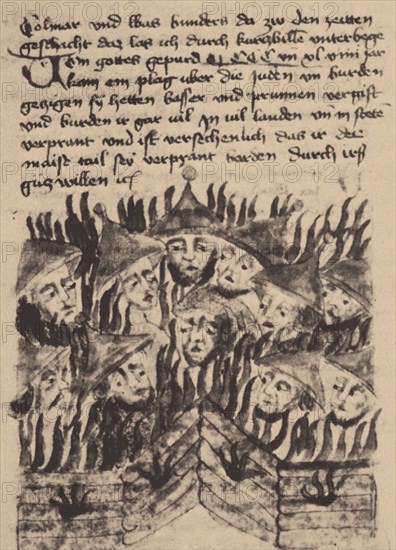 Colmar und was bunders da zw den zeitten
geschicht daz las ich durch kurczbille unterbege
Im gottes gepurd M CCC un xl viiii jar
kam ein plag uber die Juden un burden
geczigen sy hetten basser und prunnen vergift
und burden ir gar vil In vil landen un in steten
verprant und ist versechenlich das ir der
maist tail sey verprant barden durch irs
gucz willen ic
PHOTO12